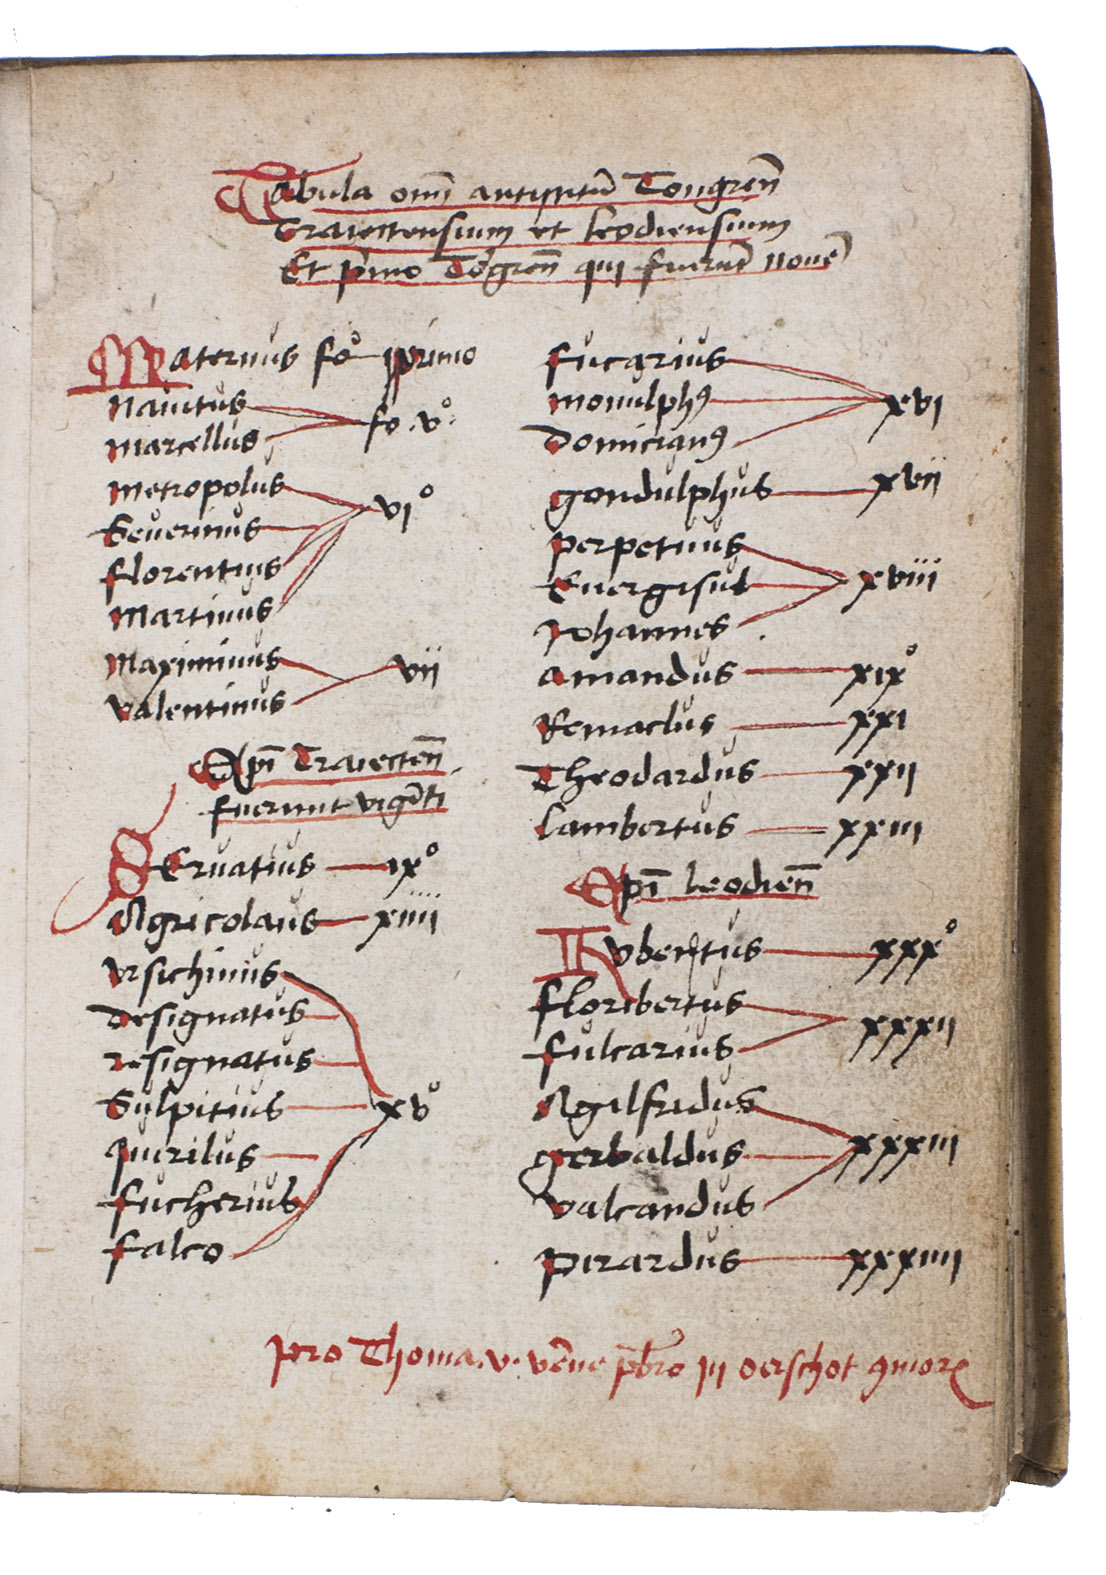 Tabula om̄ antistitū Tongreñ
Traiectensium et leodiensium
Et p̄mo Tōgreñ qui fuerūt nouē
Maternus foº primo
Nauitus
Marcellus fo. vº.
Metropolus
Seuerinus viº
florentius
Martinus
Maximinus vii
Valentinus
Ep̄i Traiecteñ
fuerunt vigīti
SEruatius ixº
Agricolaus xiiii
Vrsichinus
Designatus
resignatus
Sulpitius xvº
Quirilus
fucherius
falco
fucarius
Monulphꝰ xvi
Domicianꝰ
gondulphus xvii
perpetuus
Euergisul xviii
Johannes
Amandus xixº
Remaclus xxi
Theodardus xxii
lambertus xxiii
Ep̄i leodieñ
Hubertus xxxº
floribertus xxxii
fulcarius
Agilfridus
gerbaldus xxxiii
Valcandus
pirardus xxxiiii
pro Thoma. v. p̄bro in oerschot ꝯmorā